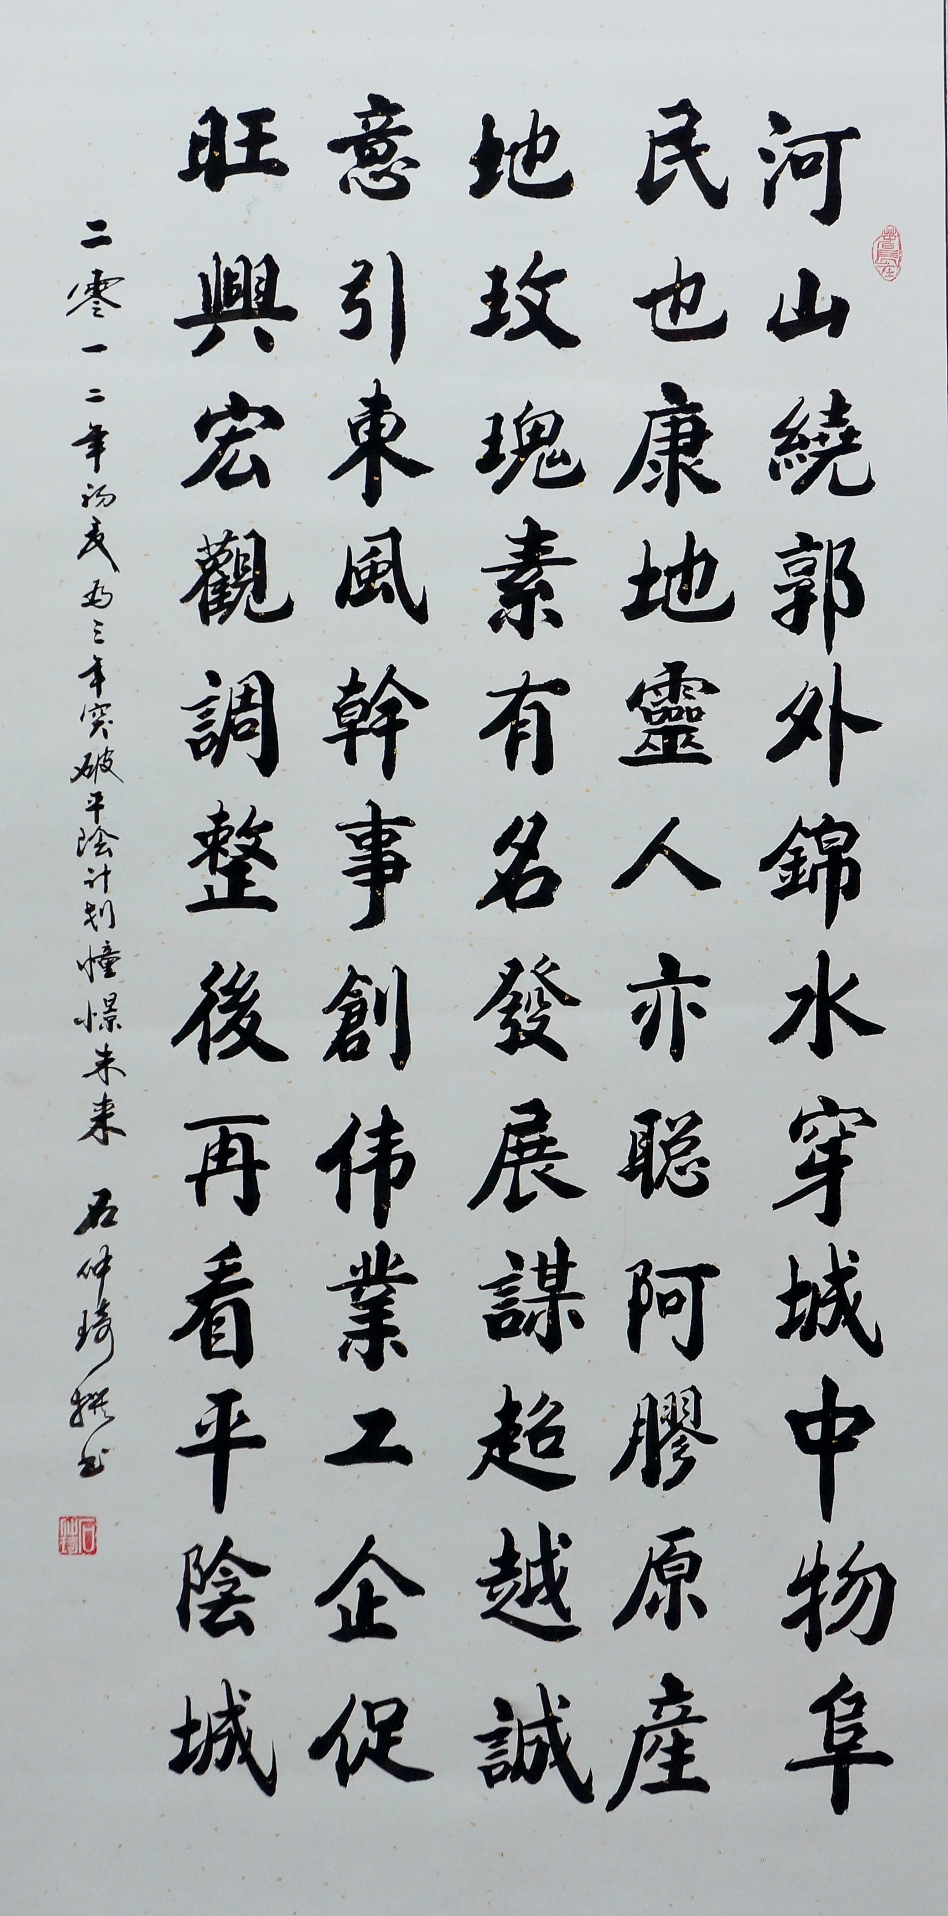 河山繞郭外錦水穿城中物阜
民也康地靈人亦聪阿膠原產
地玫瑰素有名發展謀超越誠
意引東風幹事創伟業工企促
旺興宏觀調整後再看平陰城
二零一二年初夏为三年突破平陰计划憧憬未来 石仲琦撰书